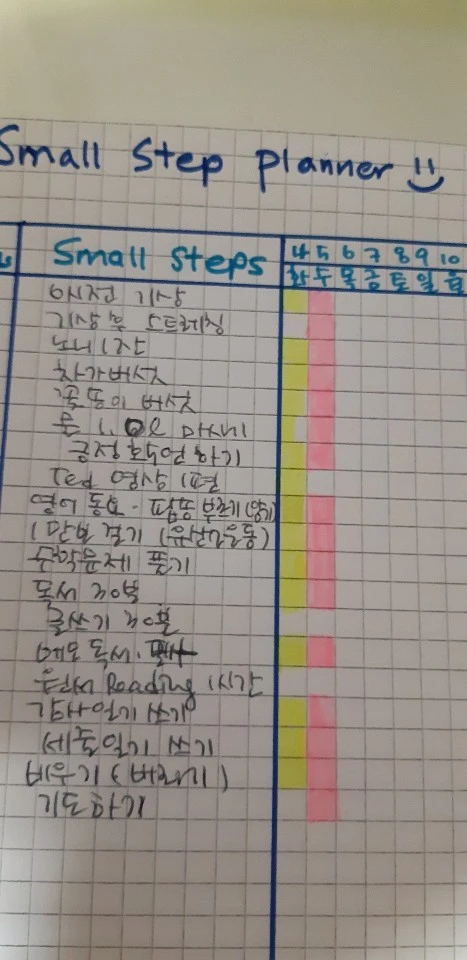 Small Step Planner
Small Steps
4 5 6 7 8 9 10
화 수 목 금 토 일 월
6시전 기상
기상 후 스트레칭
노니 1잔
차가버섯
꽃송이 버섯
물 1.0l 마시기
긍정확언 하기
Ted 영상 1편
영어 동요·팝송 부르기(암기)
1만보 걷기 (유산소운동)
수학문제 풀기
독서 30분
글쓰기 30분
메모 독서·
원서 Reading 1시간
감사일기 쓰기
세줄일기 쓰기
비우기 (버리기)
기도하기